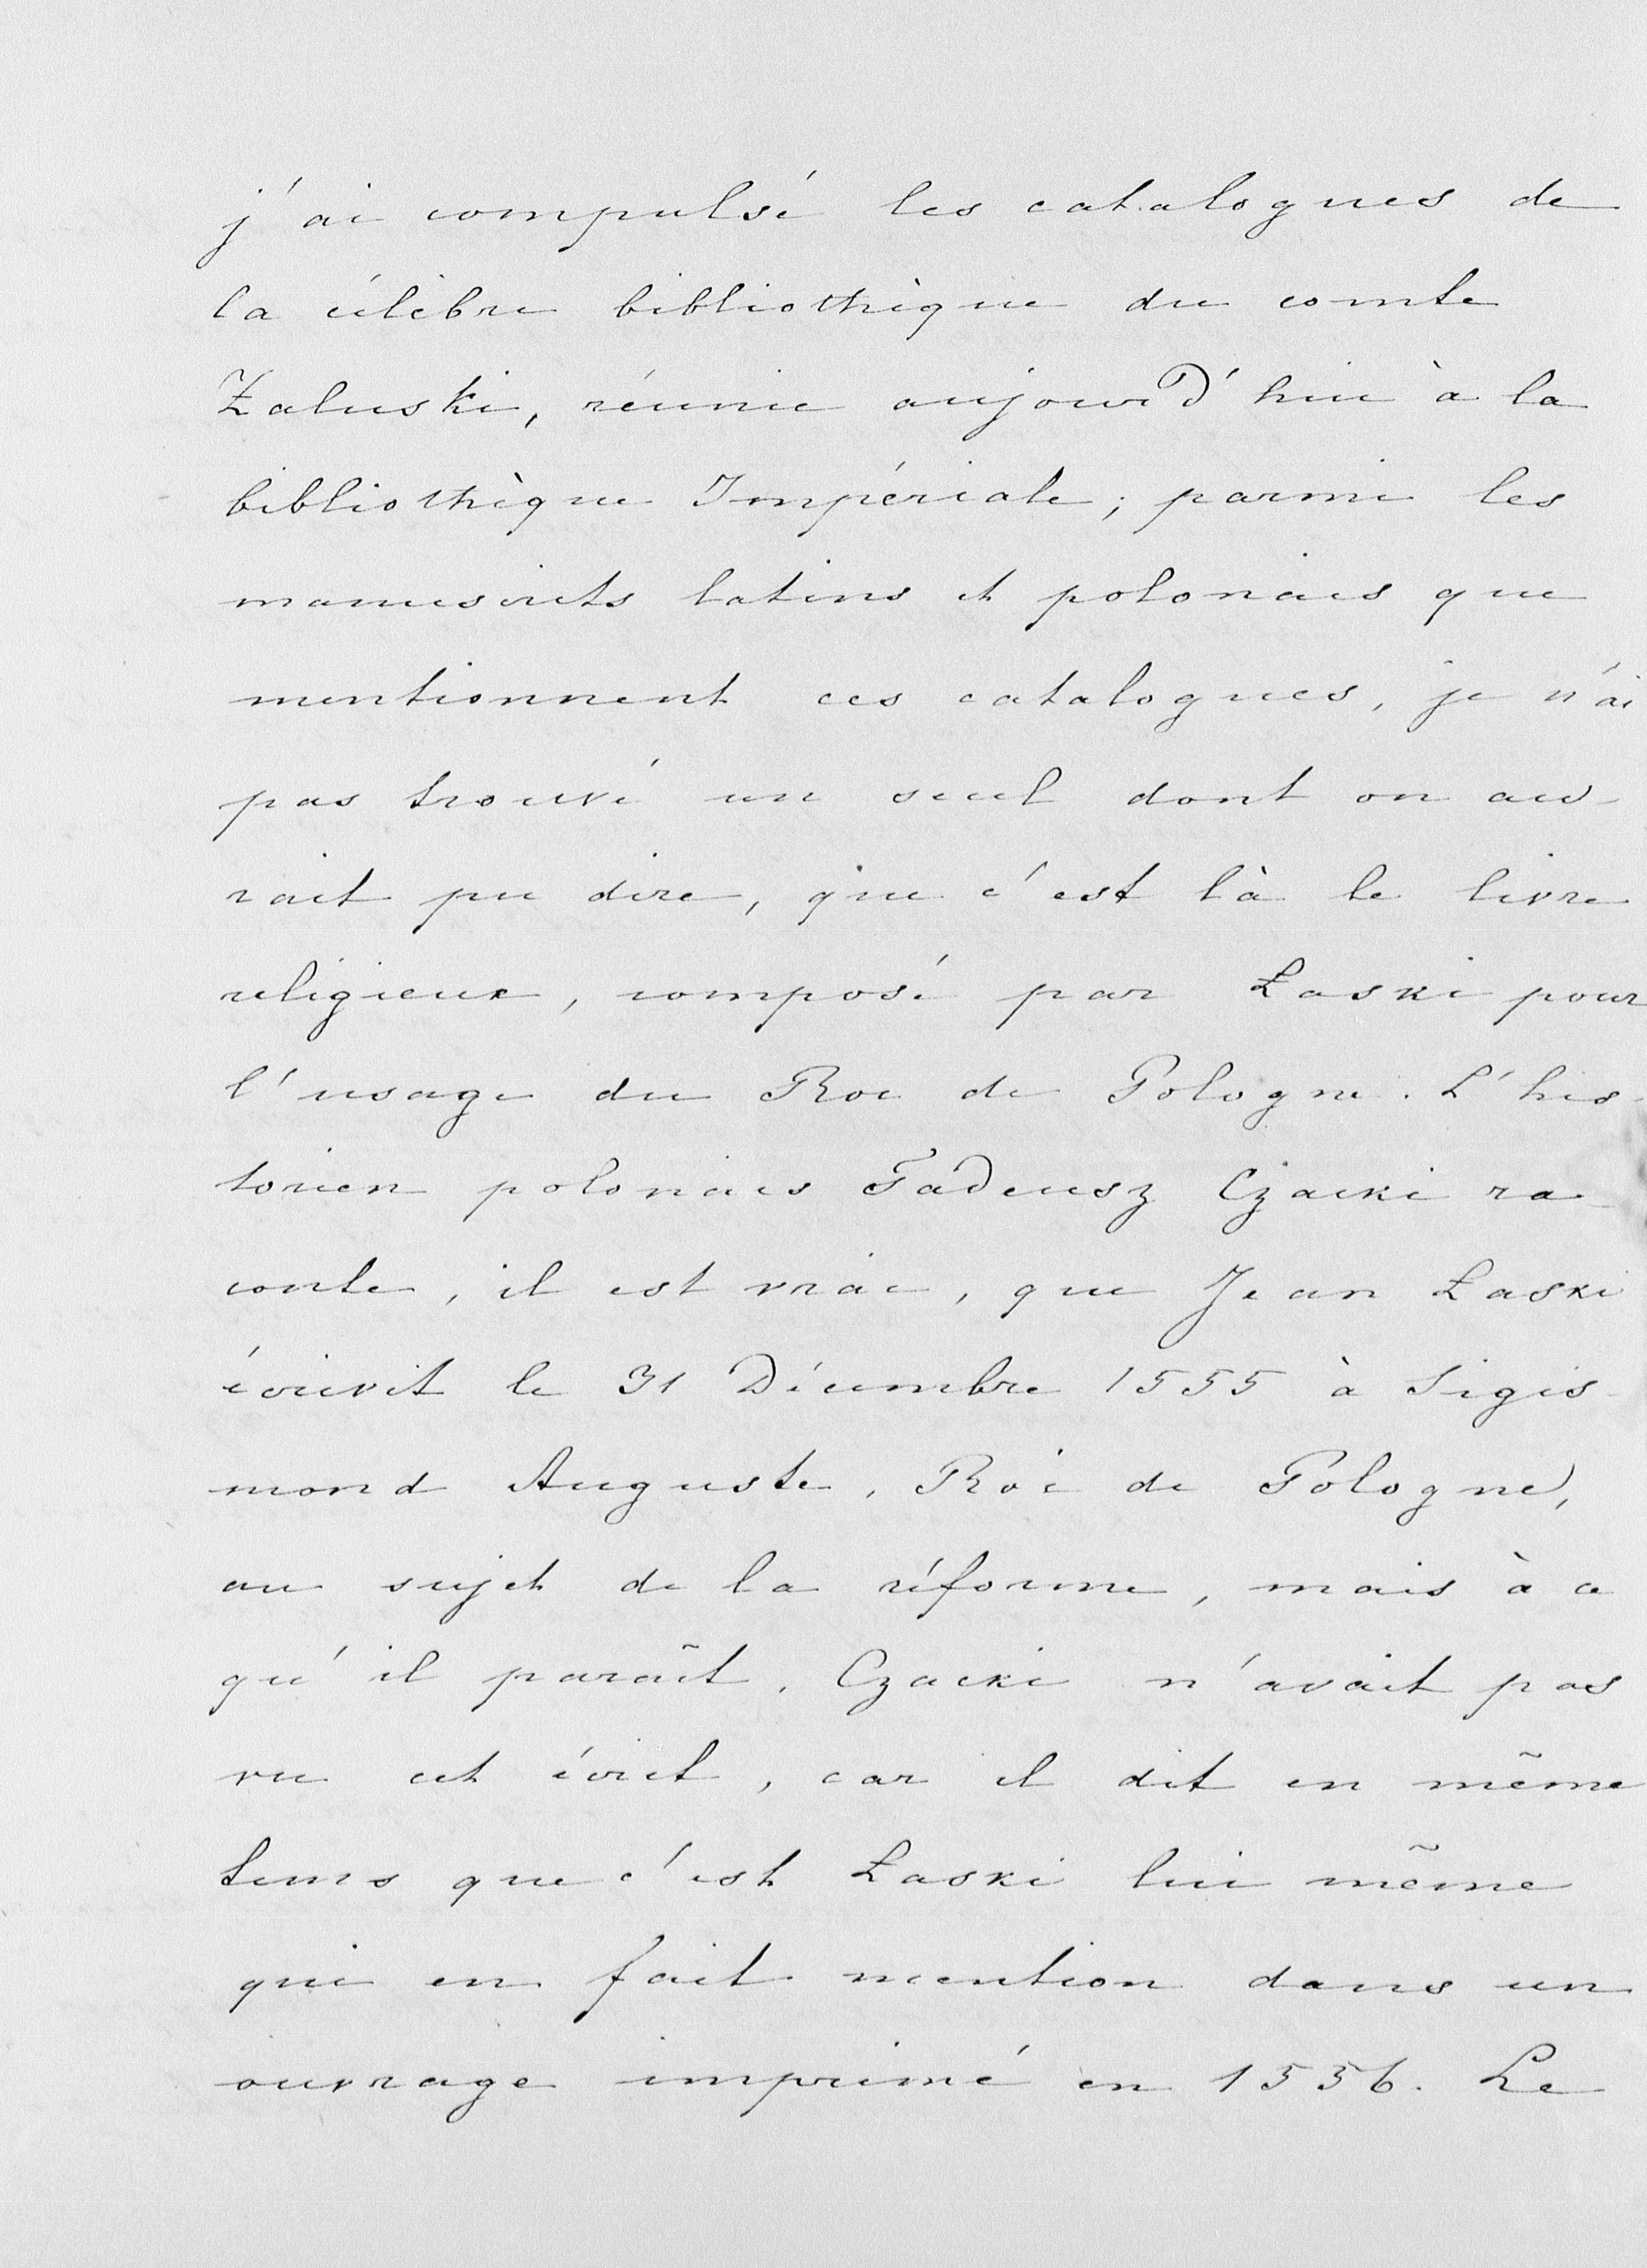 j'ai compulsé les catalogues de
la célèbre bibliothèque du comte
Zaluski, réunie aujourd'hui à la
bibliothèque Impériale; parmi les
manuscrits latins et polonais que
mentionnent ces catalogues, je n'ai
pas trouvé un seul dont on au-
rait pu dire, que c'est là le livre
religieux, composé par Łaski pour
l'usage du Roi de Pologne. L'his-
torien polonais Tadeusz Czacki ra-
conte, il est vrai, que Jean Łaski
écrivit le 31 Décembre 1555 à Sigis-
mond Auguste, Roi de Pologne,
au sujet de la réforme, mais à ce
qu'il paraît, Czacki n'avait pas
vu cet écrit, car il dit en même
tems que c'est Łaski lui même
qui en fait mention dans un
ouvrage imprimé en 1556. Le